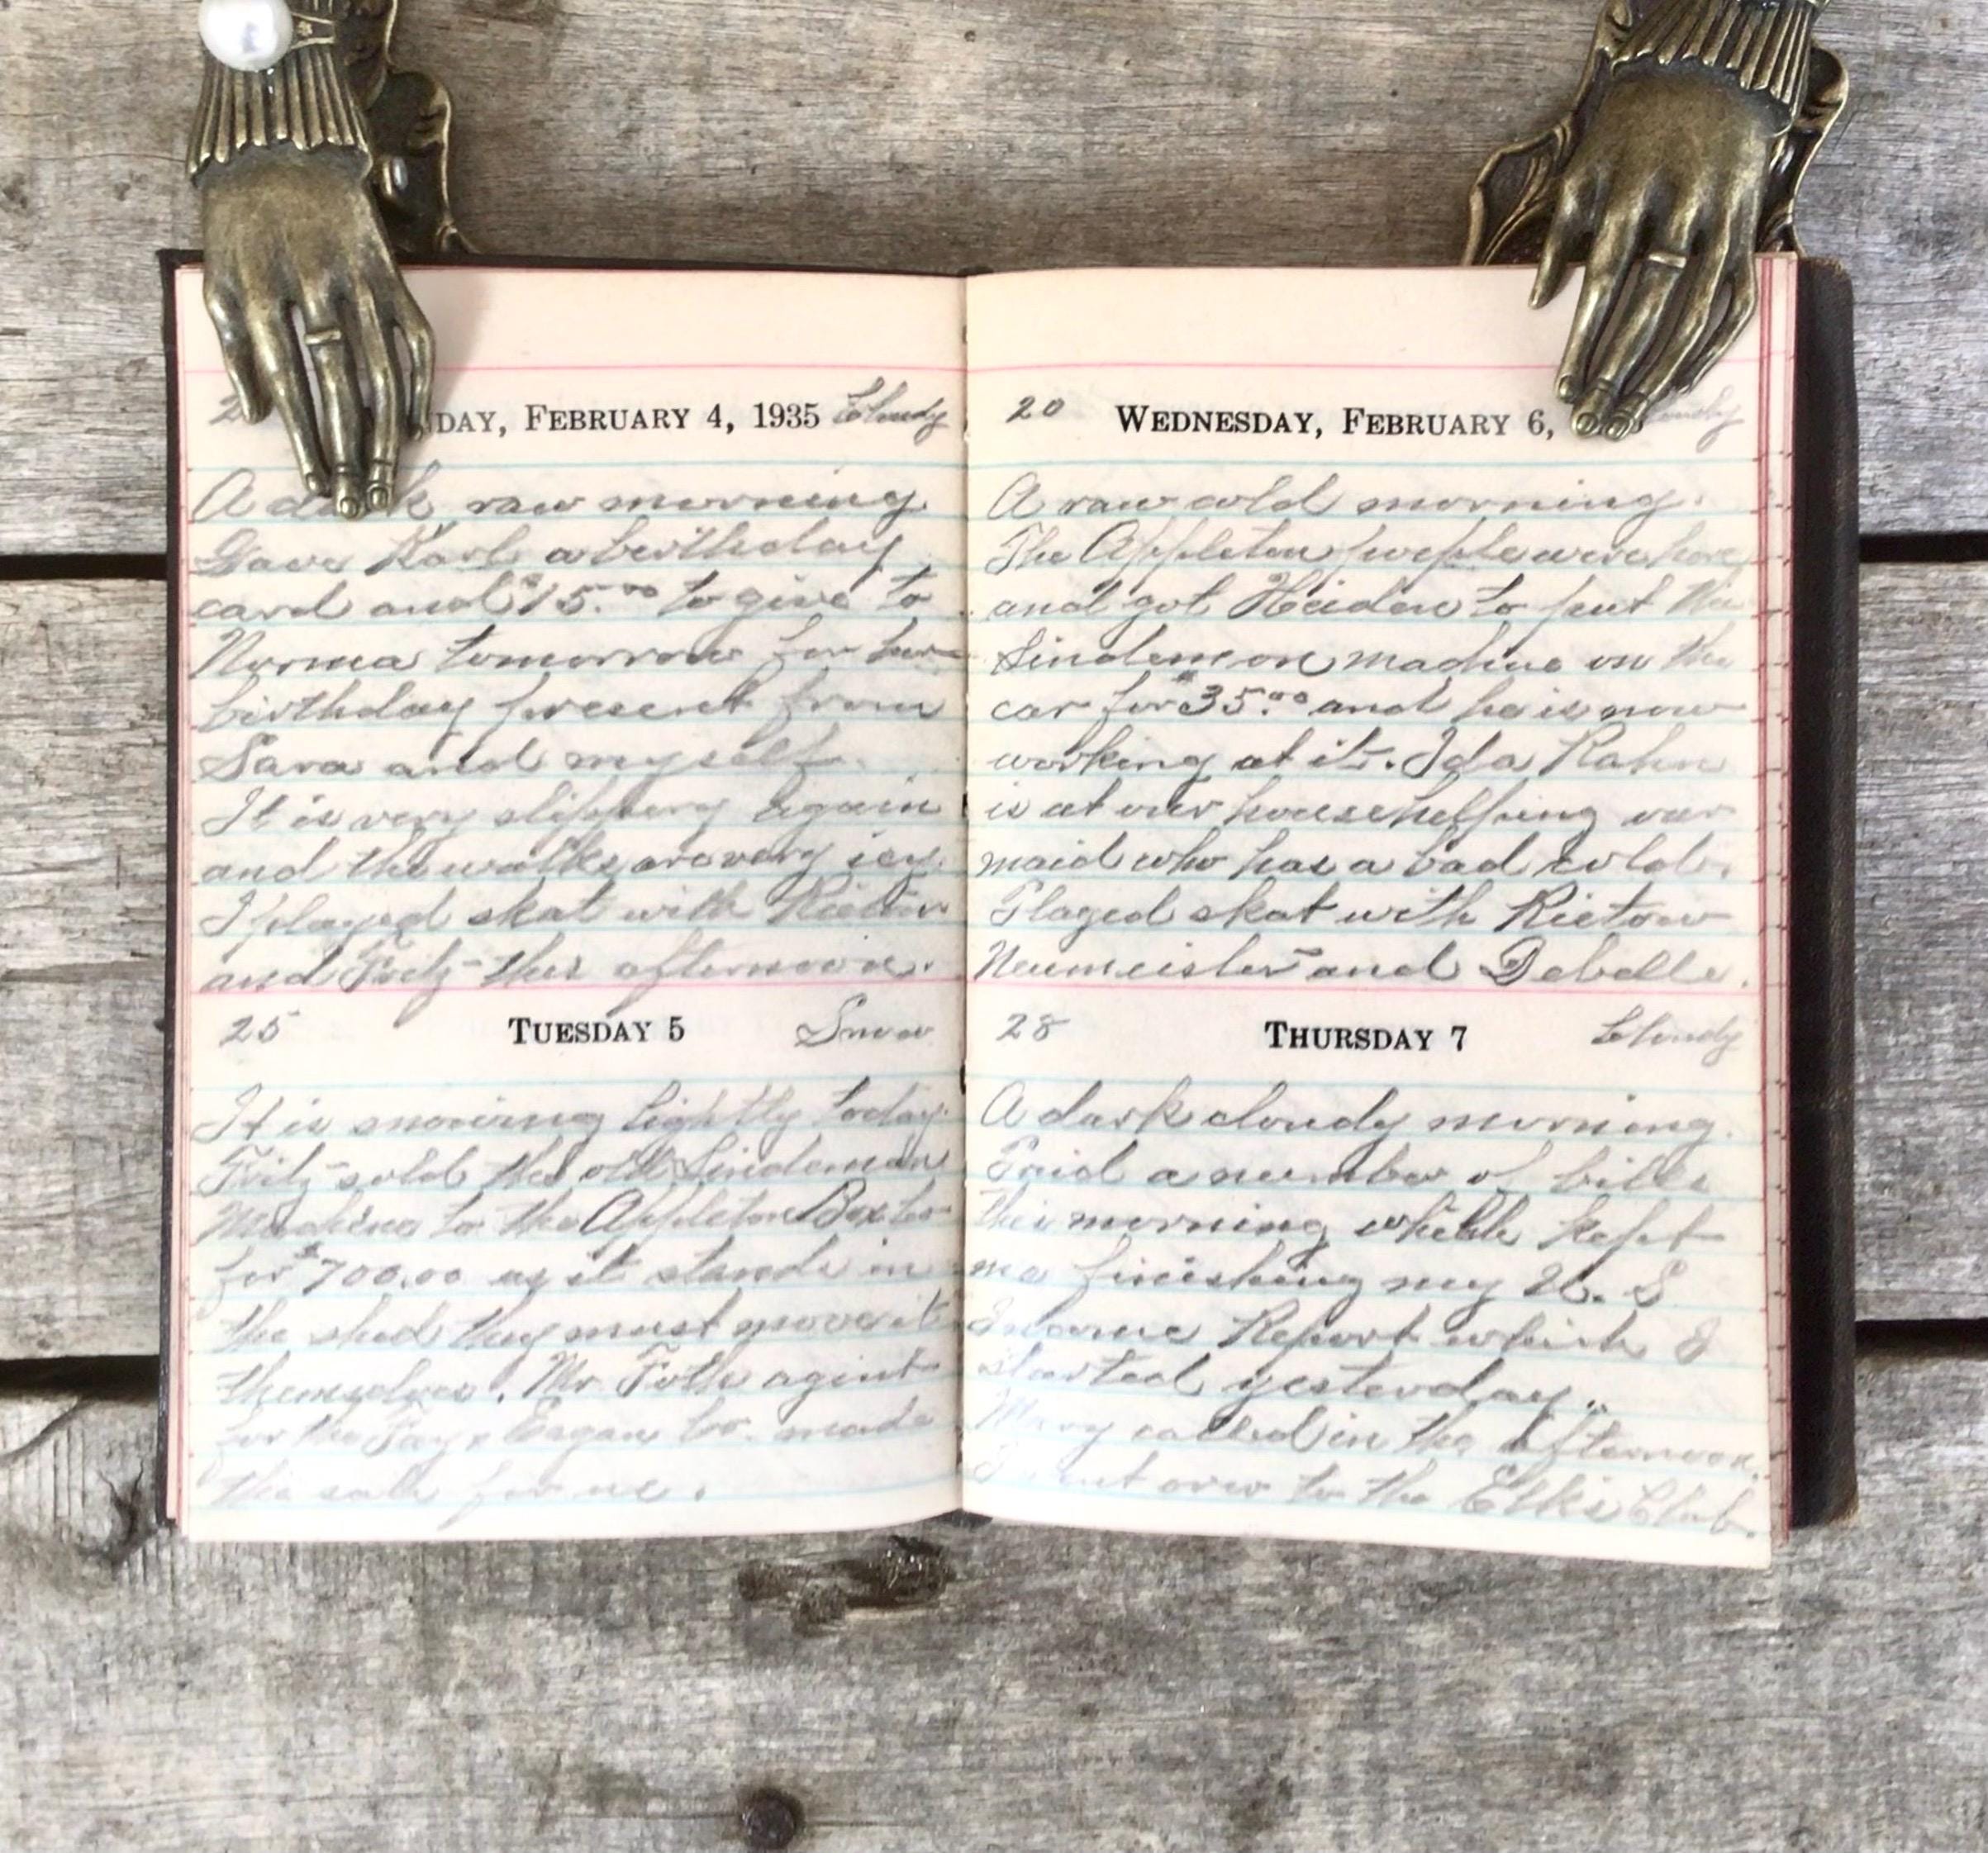 NDAY, FEBRUARY 4, 1935 Cloudy
A dark raw morning.
Gave Karl a birthday
card and $15.00 to give to
Norma tomorrow for her
birthday present from
Sara and myself.
It is very slippery again
and the walks are very icy.
I played skat with Rietow
and Fritz this afternoon.
25 TUESDAY 5 Snow
It is snowing lightly today.
Fritz sold the old Lindeman
Machine to the Appleton Box Co
for $700.00 as it stands in
the shed they must move it
themselves. Mr. Foth agent
for the Fay & Eagan Co. made
the sale for us.
20 WEDNESDAY, FEBRUARY 6, Cloudy
A raw cold morning.
The Appleton people were here
and got Heiden to put the
Lindeman machine on the
car for $35.00 and he is now
working at it. Ida Rahn
is at our house helping our
maid who has a bad cold.
Played skat with Rietow
Neumeister and Debelle.
28 THURSDAY 7 Cloudy
A dark cloudy morning.
Paid a number of bills
this morning which kept
me finishing my U. S
Income Report which I
started yesterday.
Mary called in the afternoon.
I went over to the Elks Club.